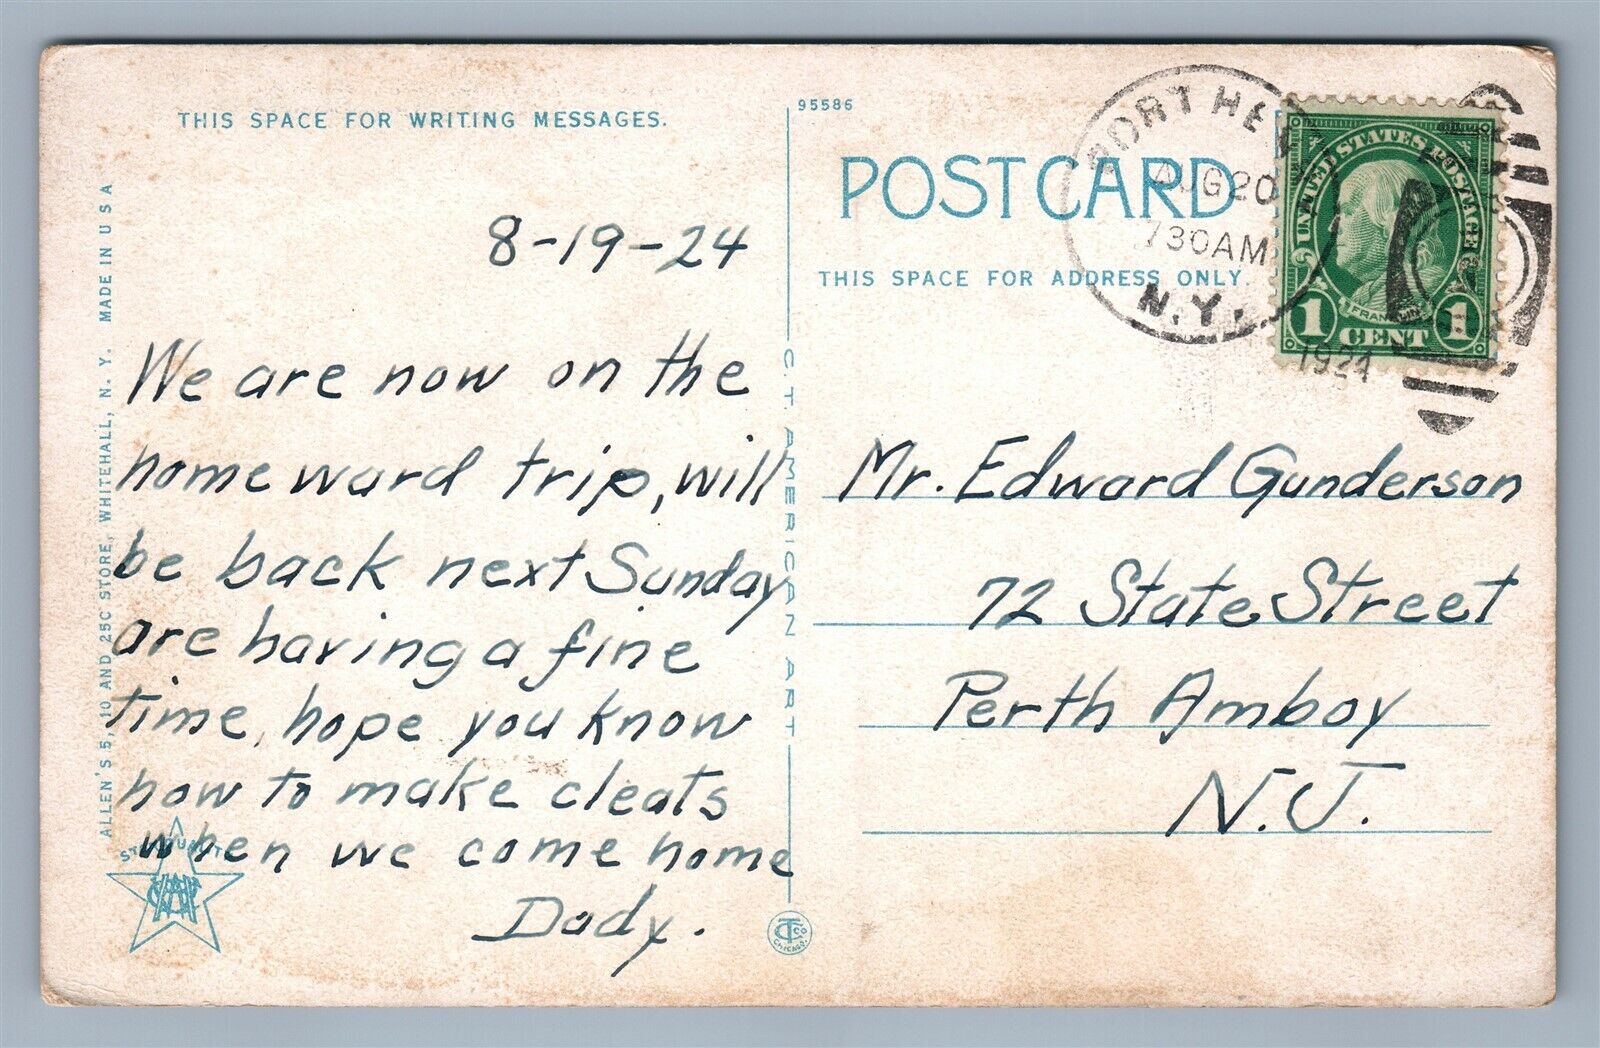 THIS SPACE FOR WRITING MESSAGES.
8-19-24
We are now on the
homeward trip, will
be back next Sunday
are having a fine
time, hope you know
how to make cleats
when we come home
Dady.
ALLEN'S 5, 10 AND 25C STORE, WHITEHALL, N. Y. MADE IN U S A
C T AMERICAN ART
95586
POST CARD
THIS SPACE FOR ADDRESS ONLY.
PORT HEN
AUG 20
730AM
N.Y.
1924
UNITED STATES POSTAGE
FRANKLIN
1 CENT 1
Mr. Edward Gunderson
72 State Street
Perth Amboy
N.J.
CHICAGO.